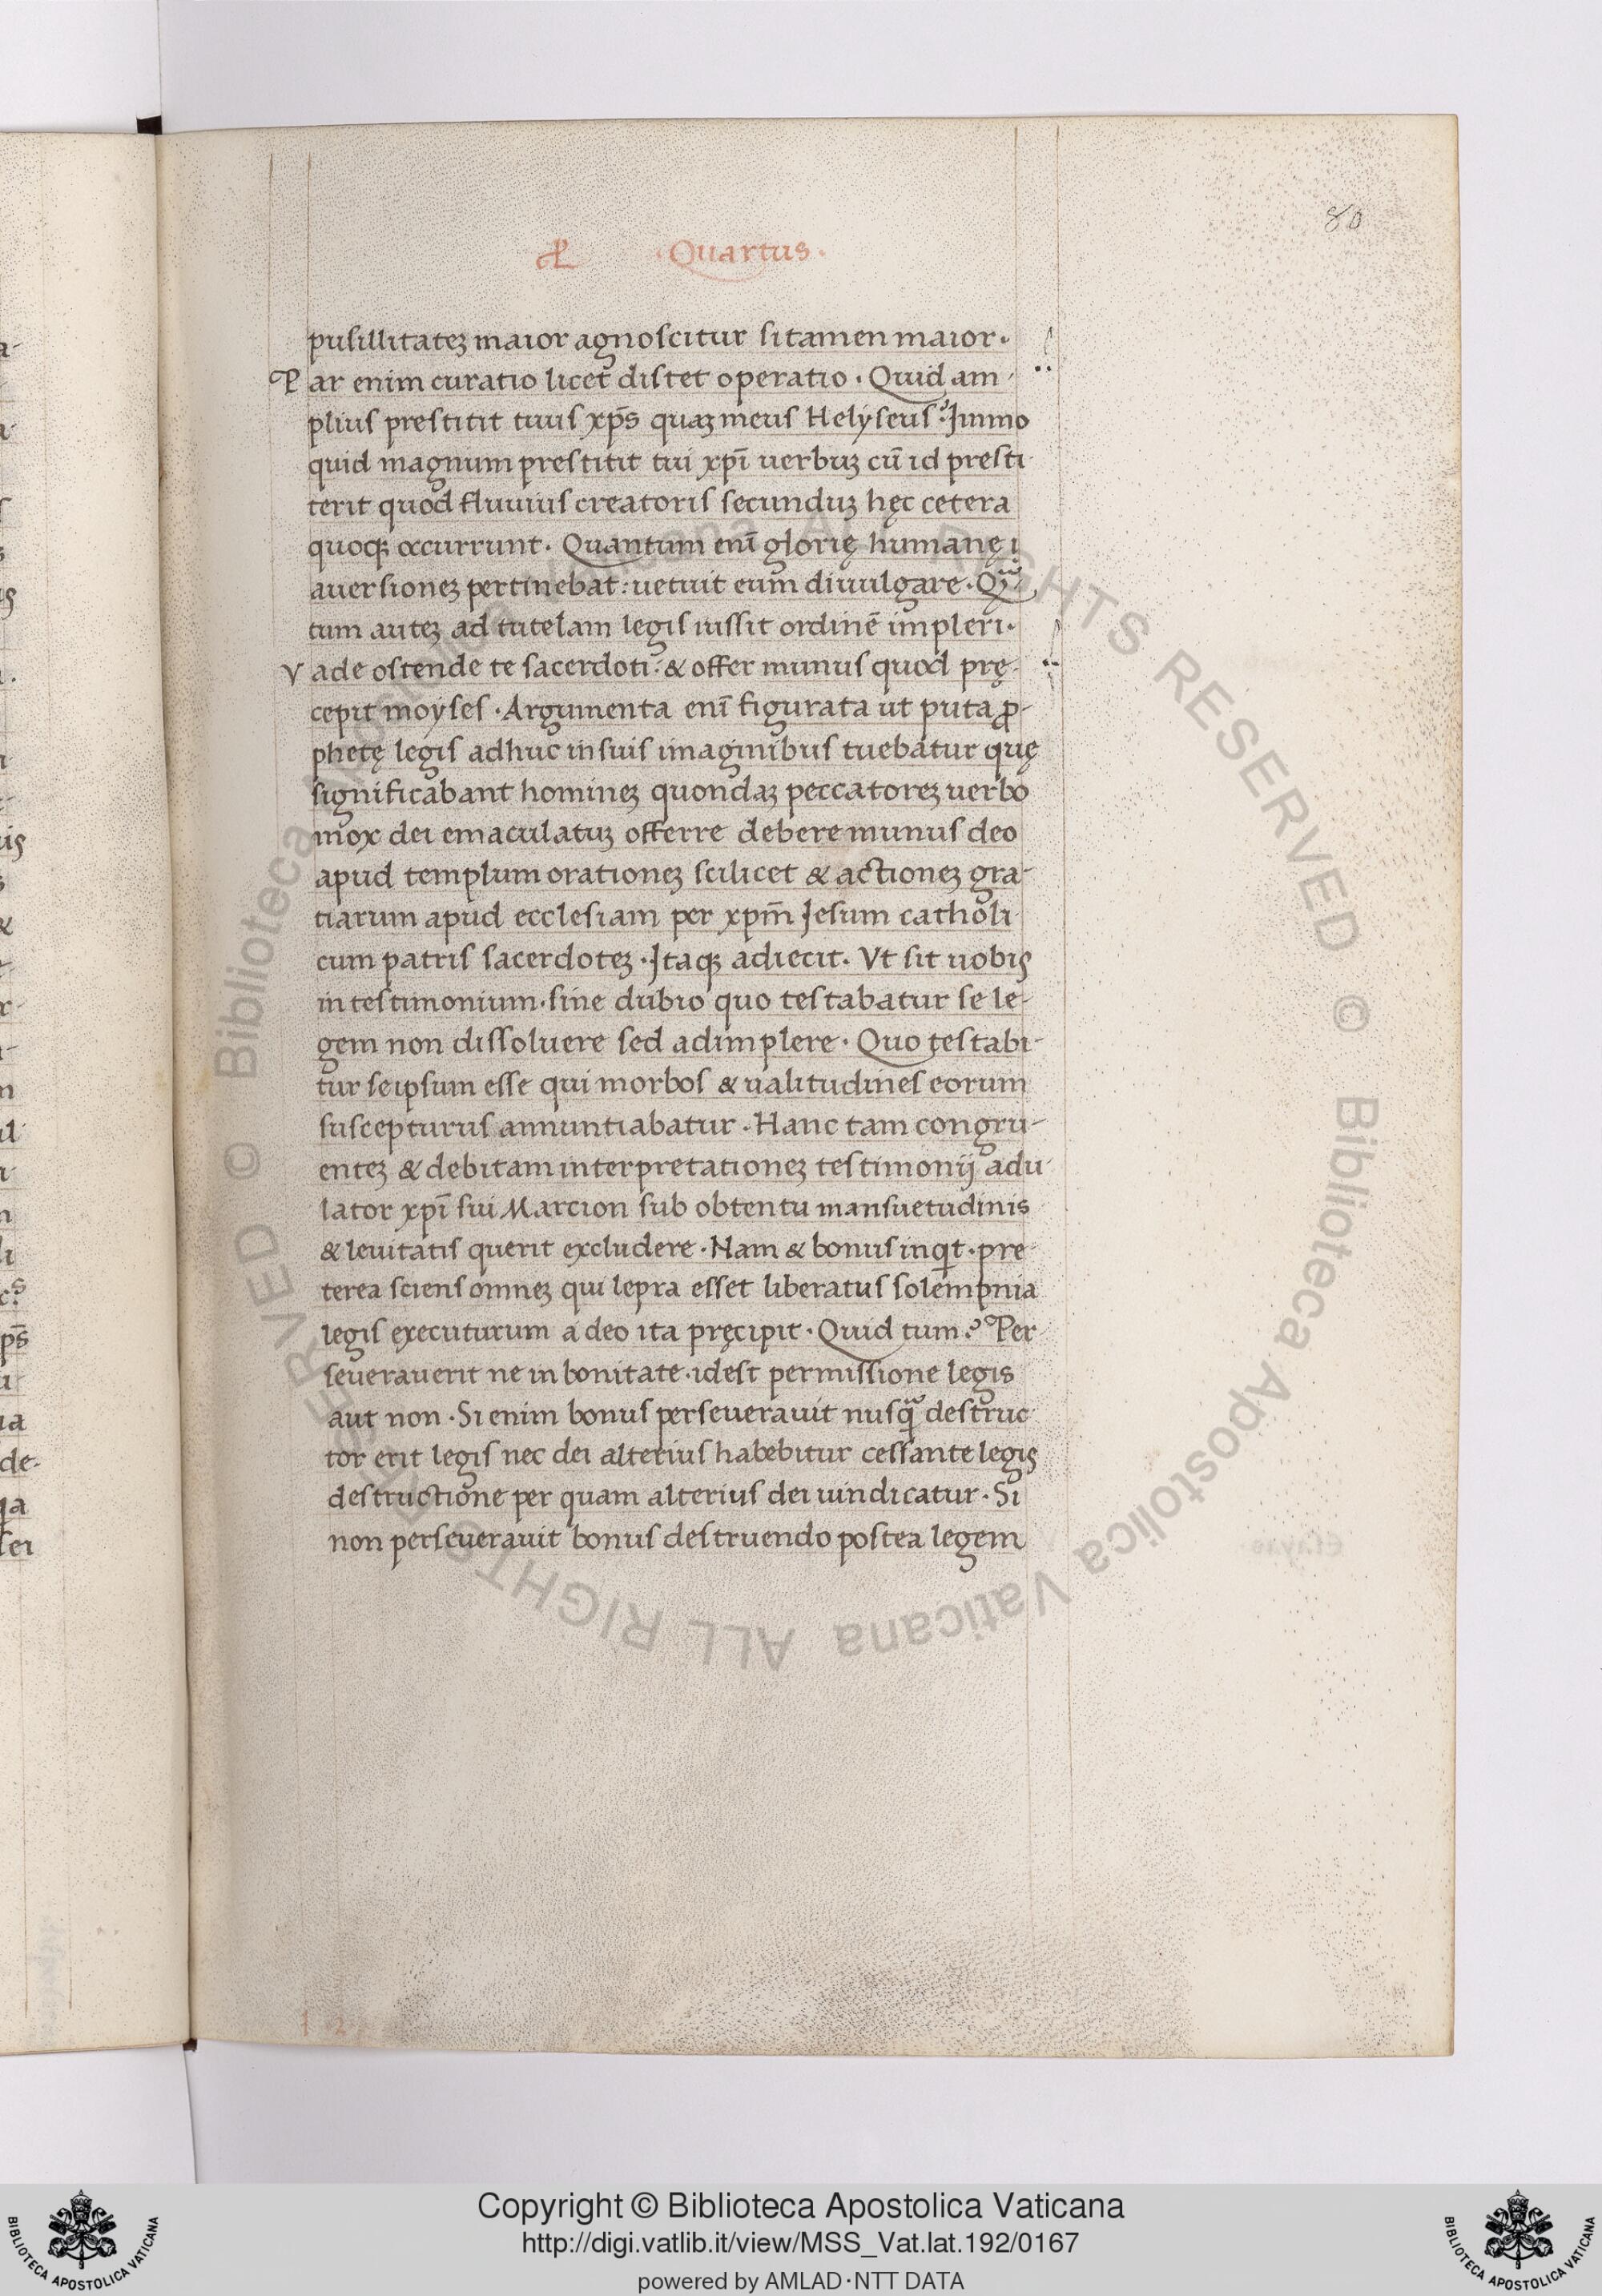 80
· Quartus ·
pusillitateꝫ maior agnoscitur si tamen maior ·
Par enim curatio licet distet operatio · Quid am-
plius prestitit tuus xp̄s quaꝫ meus Helyseus? Immo
quid magnum prestitit tui xp̄i uerbuꝫ cū id presti-
terit quod fluuius creatoris secunduꝫ hęc cetera
quoqꝫ occurrunt · Quantum enī glorię humanę
auersioneꝫ pertinebat: uetuit eum diuulgare · Quan
tum auteꝫ ad tutelam legis iussit ordinē impleri ·
Vade ostende te sacerdoti: & offer munus quod prę-
cepit moyses · Argumenta enī figurata ut puta ꝓ-
phetę legis adhuc in suis imaginibus tuebatur quę
significabant homineꝫ quondaꝫ peccatoreꝫ uerbo
mox dei emaculatuꝫ offerre debere munus deo
apud templum orationeꝫ scilicet & actioneꝫ gra-
tiarum apud ecclesiam per xpm̄ Jesum catholi-
cum patris sacerdoteꝫ · Itaqꝫ adiecit · Vt sit uobis
in testimonium · sine dubio quo testabatur se le-
gem non dissoluere sed adimplere · Quo testabi-
tur se ipsum esse qui morbos & ualitudines eorum
suscepturus annuntiabatur · Hanc tam congru-
enteꝫ & debitam interpretationeꝫ testimonij adu-
lator xp̄i sui Marcion sub obtentu mansuetudinis
& leuitatis querit excludere · Nam & bonus inqt · pre-
terea sciens omneꝫ qui lepra esset liberatus solempnia
legis executurum a deo ita pręcipit · Quid tum? Per
seuerauerit ne in bonitate · idest permissione legis
aut non · Si enim bonus perseuerauit nusq̄ destruc-
tor erit legis nec dei alterius habebitur cessante legis
destructione per quam alterius dei uindicatur · Si
non perseuerauit bonus destruendo postea legem
1 2
Copyright © Biblioteca Apostolica Vaticana
http://digi.vatlib.it/view/MSS_Vat.lat.192/0167
powered by AMLAD·NTT DATA
BIBLIOTECA APOSTOLICA VATICANA
BIBLIOTECA APOSTOLICA VATICANA
© Biblioteca Apostolica Vaticana ALL RIGHTS RESERVED © Biblioteca Apostolica Vaticana ALL RIGHTS RESERVED